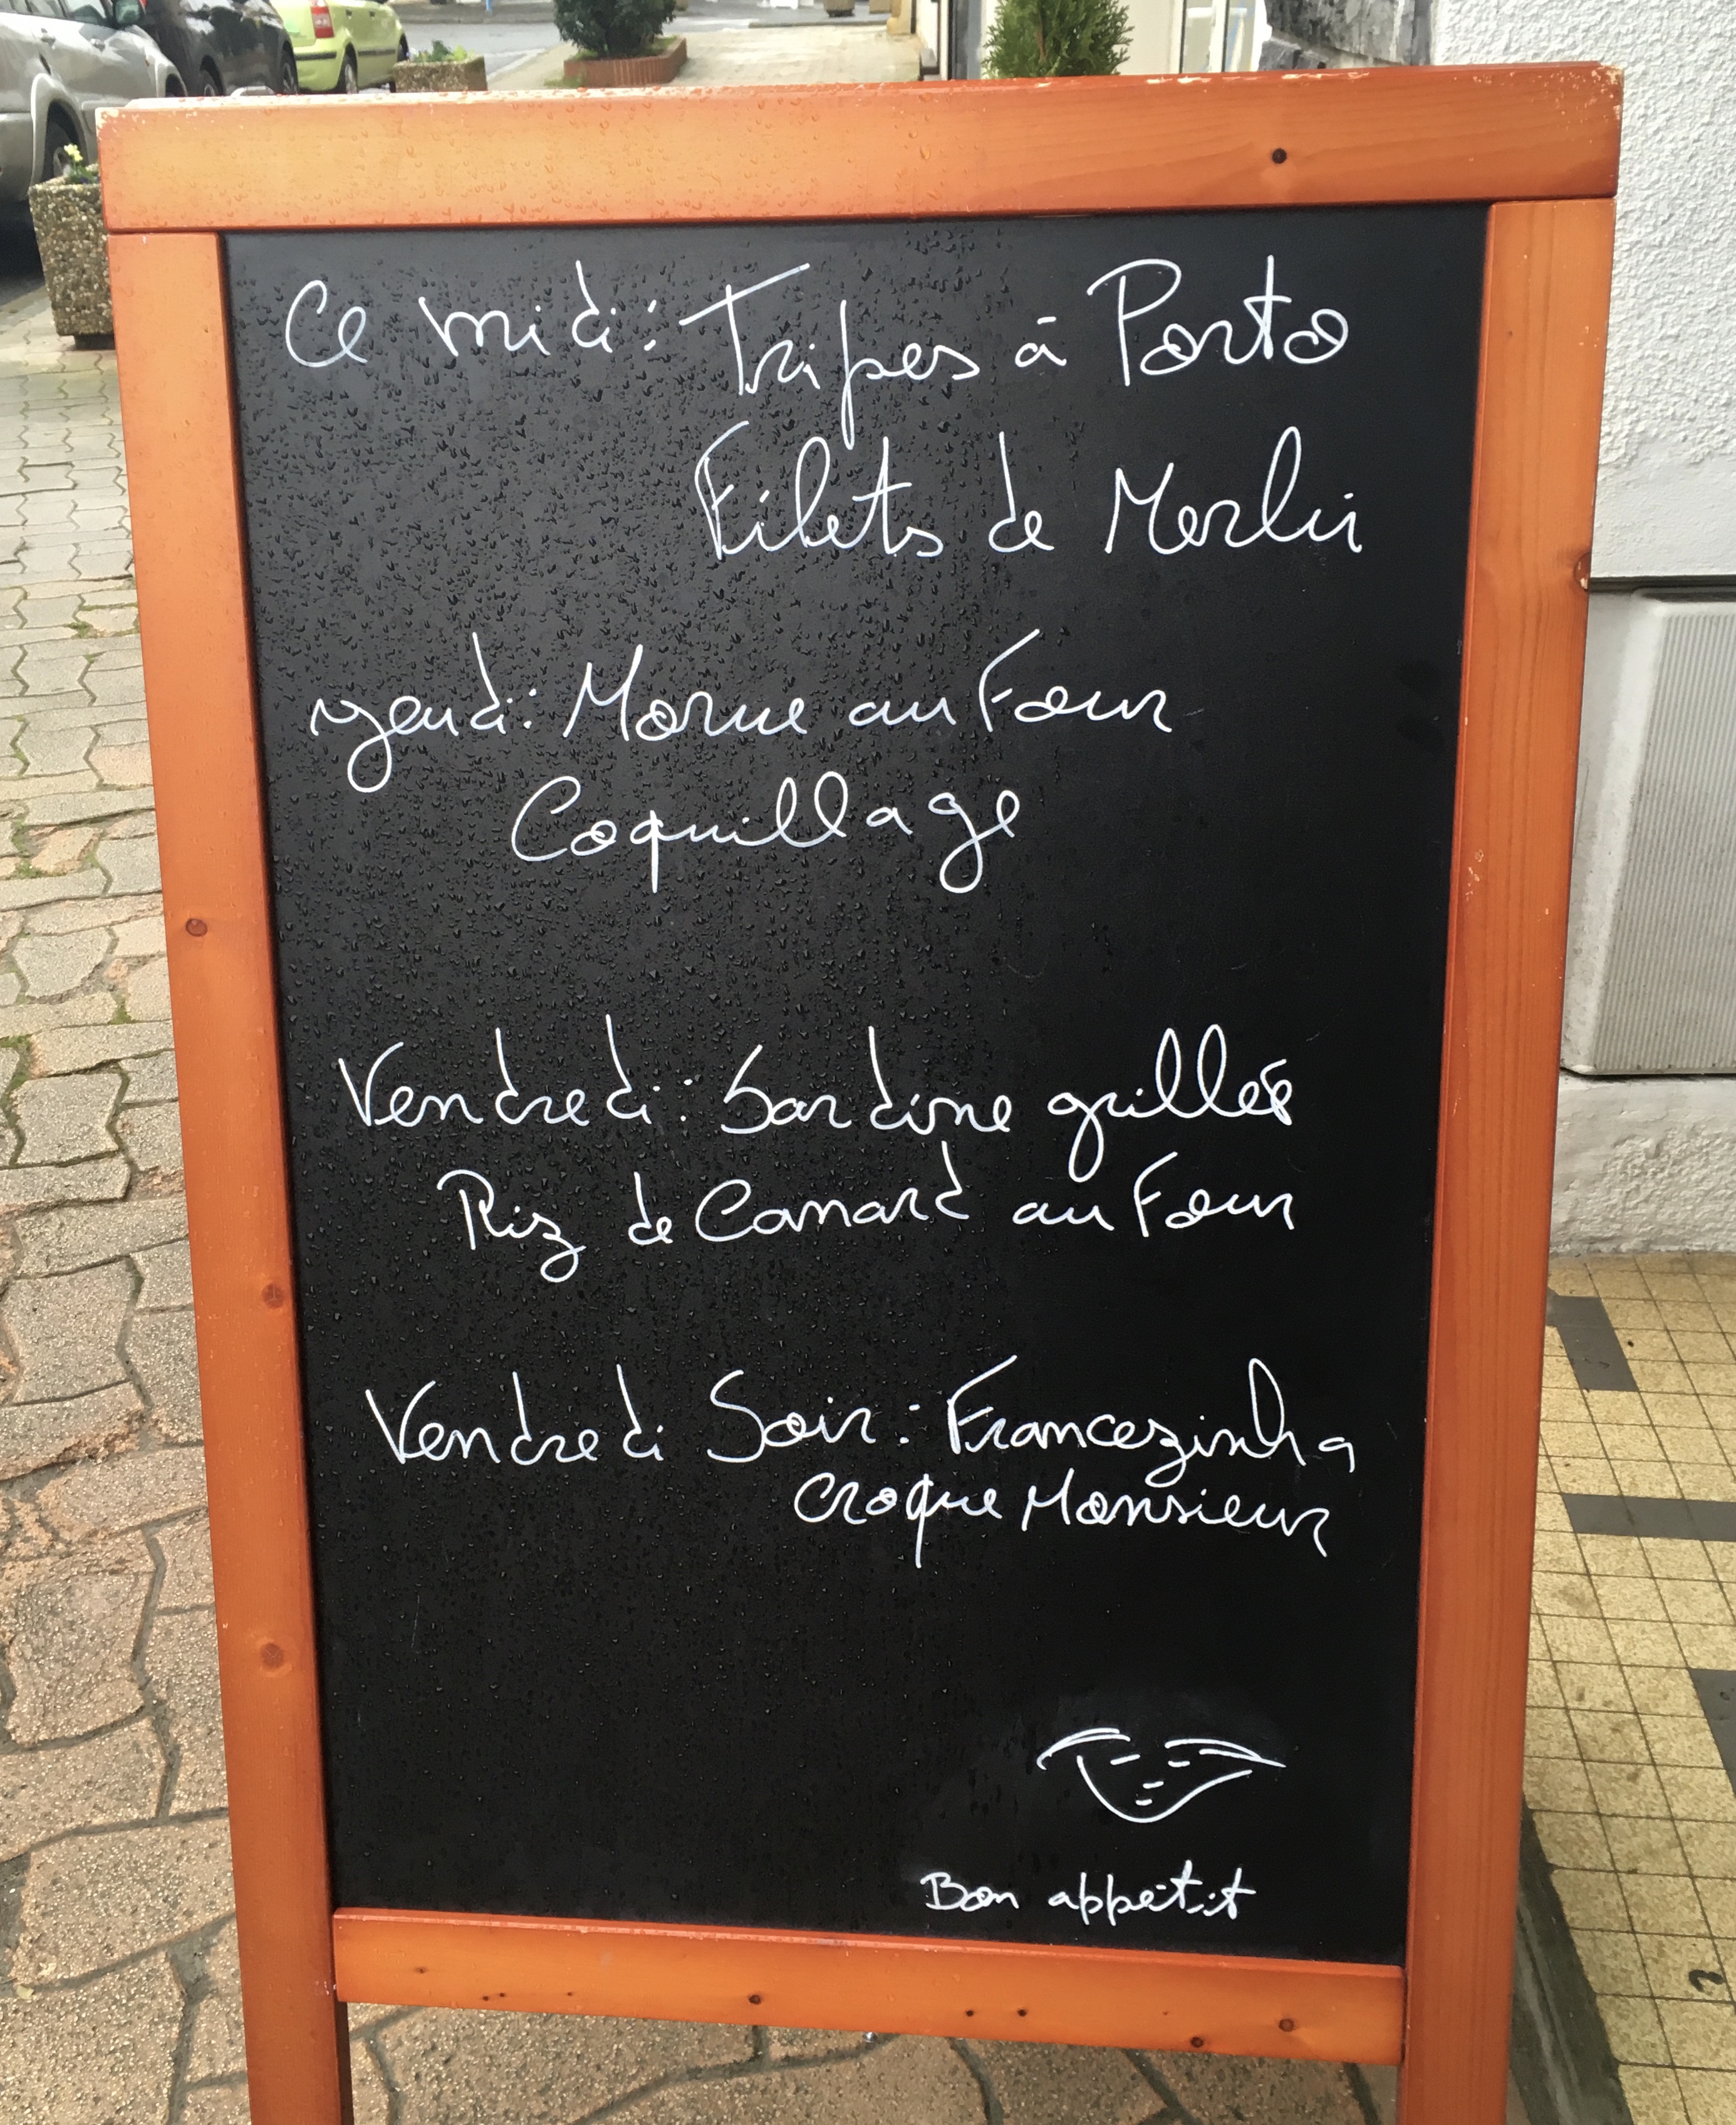 Ce midi: Tripes à Porto
Filets de Merlu
jeudi: Morue au Four
Coquillage
Vendredi: Sardine grillés
Riz de Canard au Four
Vendredi Soir: Francezinha
Croque Monsieur
Bon appétit